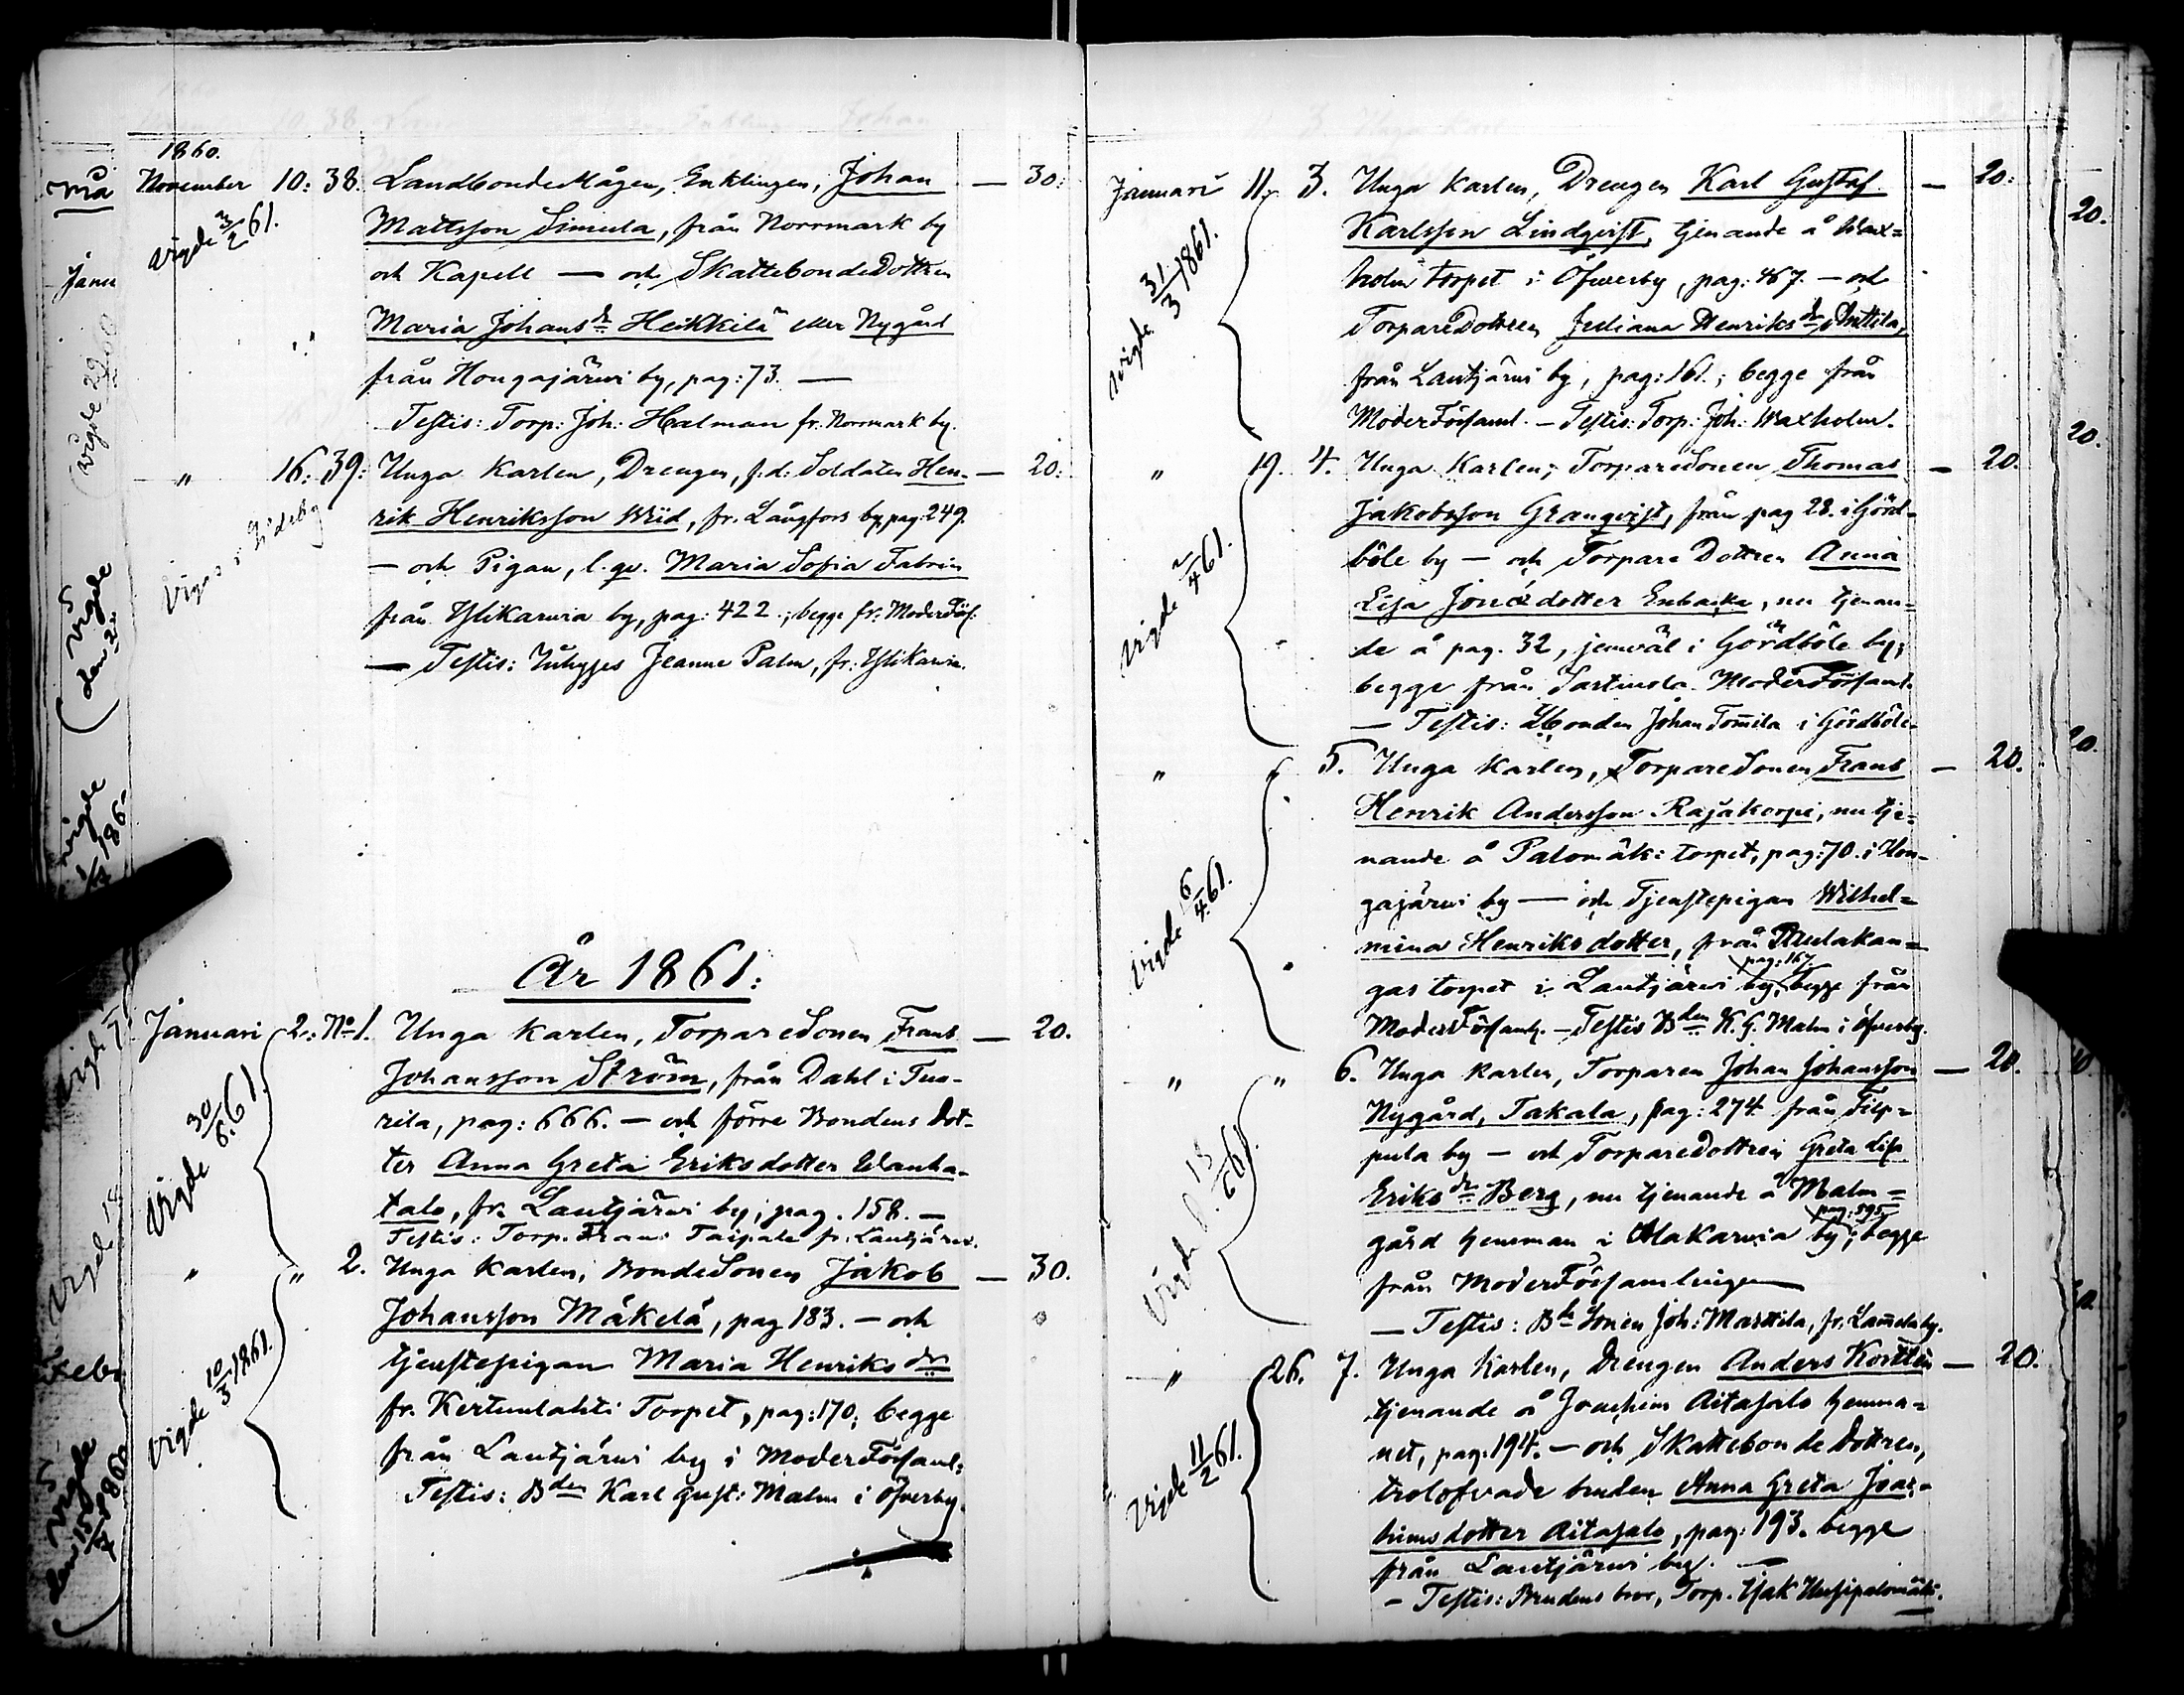 1860.
November 10: 38. LandbondeMågen, Enklingen, Johan — 30:
Vigde 3/2 61.
Mattsson Simula, från Norrmark by
och Kapell — och SkattebondeDottren
Maria Johansdr Heikkilä eller Nygård
från Hongajärwi by, pag: 73. —
Testis: Torp: Joh: Halman fr. Norrmark by.
" 16: 39: Unga Karlen, Drengen, f.d. Soldaten Hen- — 20:
rik Henriksson Wiid, fr. Långfors by, pag: 249.
— och Pigan, l. qv. Maria Sofia Fabrin
från Yslikarwia by, pag: 422.; begge fr: ModerFörs:
— Testis: Jeanne Palm, fr:
År 1861:
Januari 2: No 1. Unga Karlen, TorpareSonen Frans — 20.
Vigde 30/6. 61.
Johansson Ström, från Dahl i Tuo-
rila, pag: 666. — och förre Bondens Dot-
ter Anna Greta Eriksdotter Wanha-
talo, fr. Lautjärwi by; pag. 158. —
Testis: Torp. Frans Taipale fr. Lautjärwi.
" " 2. Unga Karlen, BondeSonen Jakob — 30.
Vigde 10/3 1861.
Johansson Mäkelä, pag 183. — och
tjenstepigan Maria Henriksdr
fr. Kertunlahti Torpet, pag: 170; begge
från Lautjärwi by i ModerFörsaml:
Testis: Bden Karl Gust: Malm i Öfverby.
Januari 11. 3. Unga Karlen, Drengen Karl Gustaf — 20:
Vigde 31/3 1861.
Karlsson Lindqvist, tjenande å Wax=
holm torpet i Öfwerby, pag: 467. — och
TorpareDottren Juliana Henriksdr Anttila,
från Lautjärwi by, pag: 161.; begge från
ModerFörsaml. — Testis: Torp: Joh: Waxholm.
" 19. 4. Unga Karlen, TorpareSonen Thomas — 20.
Vigde 2/4 61.
Jakobsson Granqvist, från pag 28. i Görd-
böle by — och TorpareDottren Anna
Lisa Jonædotter Enbacka, nu tjenan-
de å pag. 32, jemväl i Gördböle by;
begge från Sastmola ModerFörsaml.
— Testis: Lbonden Johan Tom̄ila i Gördböle.
" " 5. Unga Karlen, TorpareSonen Frans — 20.
Vigde 6/4 61.
Henrik Andersson Rajakorpi, nu tje-
nande å Palomäki torpet, pag: 70. i Hon-
gajärwi by — och Tjenstepigan Wilhel=
mina Henriksdotter, från
pag: 167.
gas torpet i Lautjärwi by; begge från
ModerFörsaml. — Testis Bden K. G. Malm i Öfverby.
" " 6. Unga Karlen, Torparen Johan Johansson — 20.
Vigde
Nygård, Takala, pag: 274 från Filp=
pula by — och TorpareDottren Greta Lisa
Eriksdr Berg, nu tjenande å Malm=
pag: 595.
gård hemman i Alakarwia by; begge
från ModerFörsamlingen —
— Testis: Bde Sonen Joh: Marttila, fr. Lam̄elaby.
" 26. 7. Unga Karlen, Drengen Anders Korttén — 20.
Vigde 11/2 61.
tjenande å Joachim Aitasalo hemma=
net, pag: 194. — och SkattebondeDottren,
trolofvade bruden Anna Greta Joac-
himsdotter Aitasalo, pag: 193. begge
från Lautjärwi by. —
— Testis: Brudens bror, Torp. Isak Uusipalomäki.